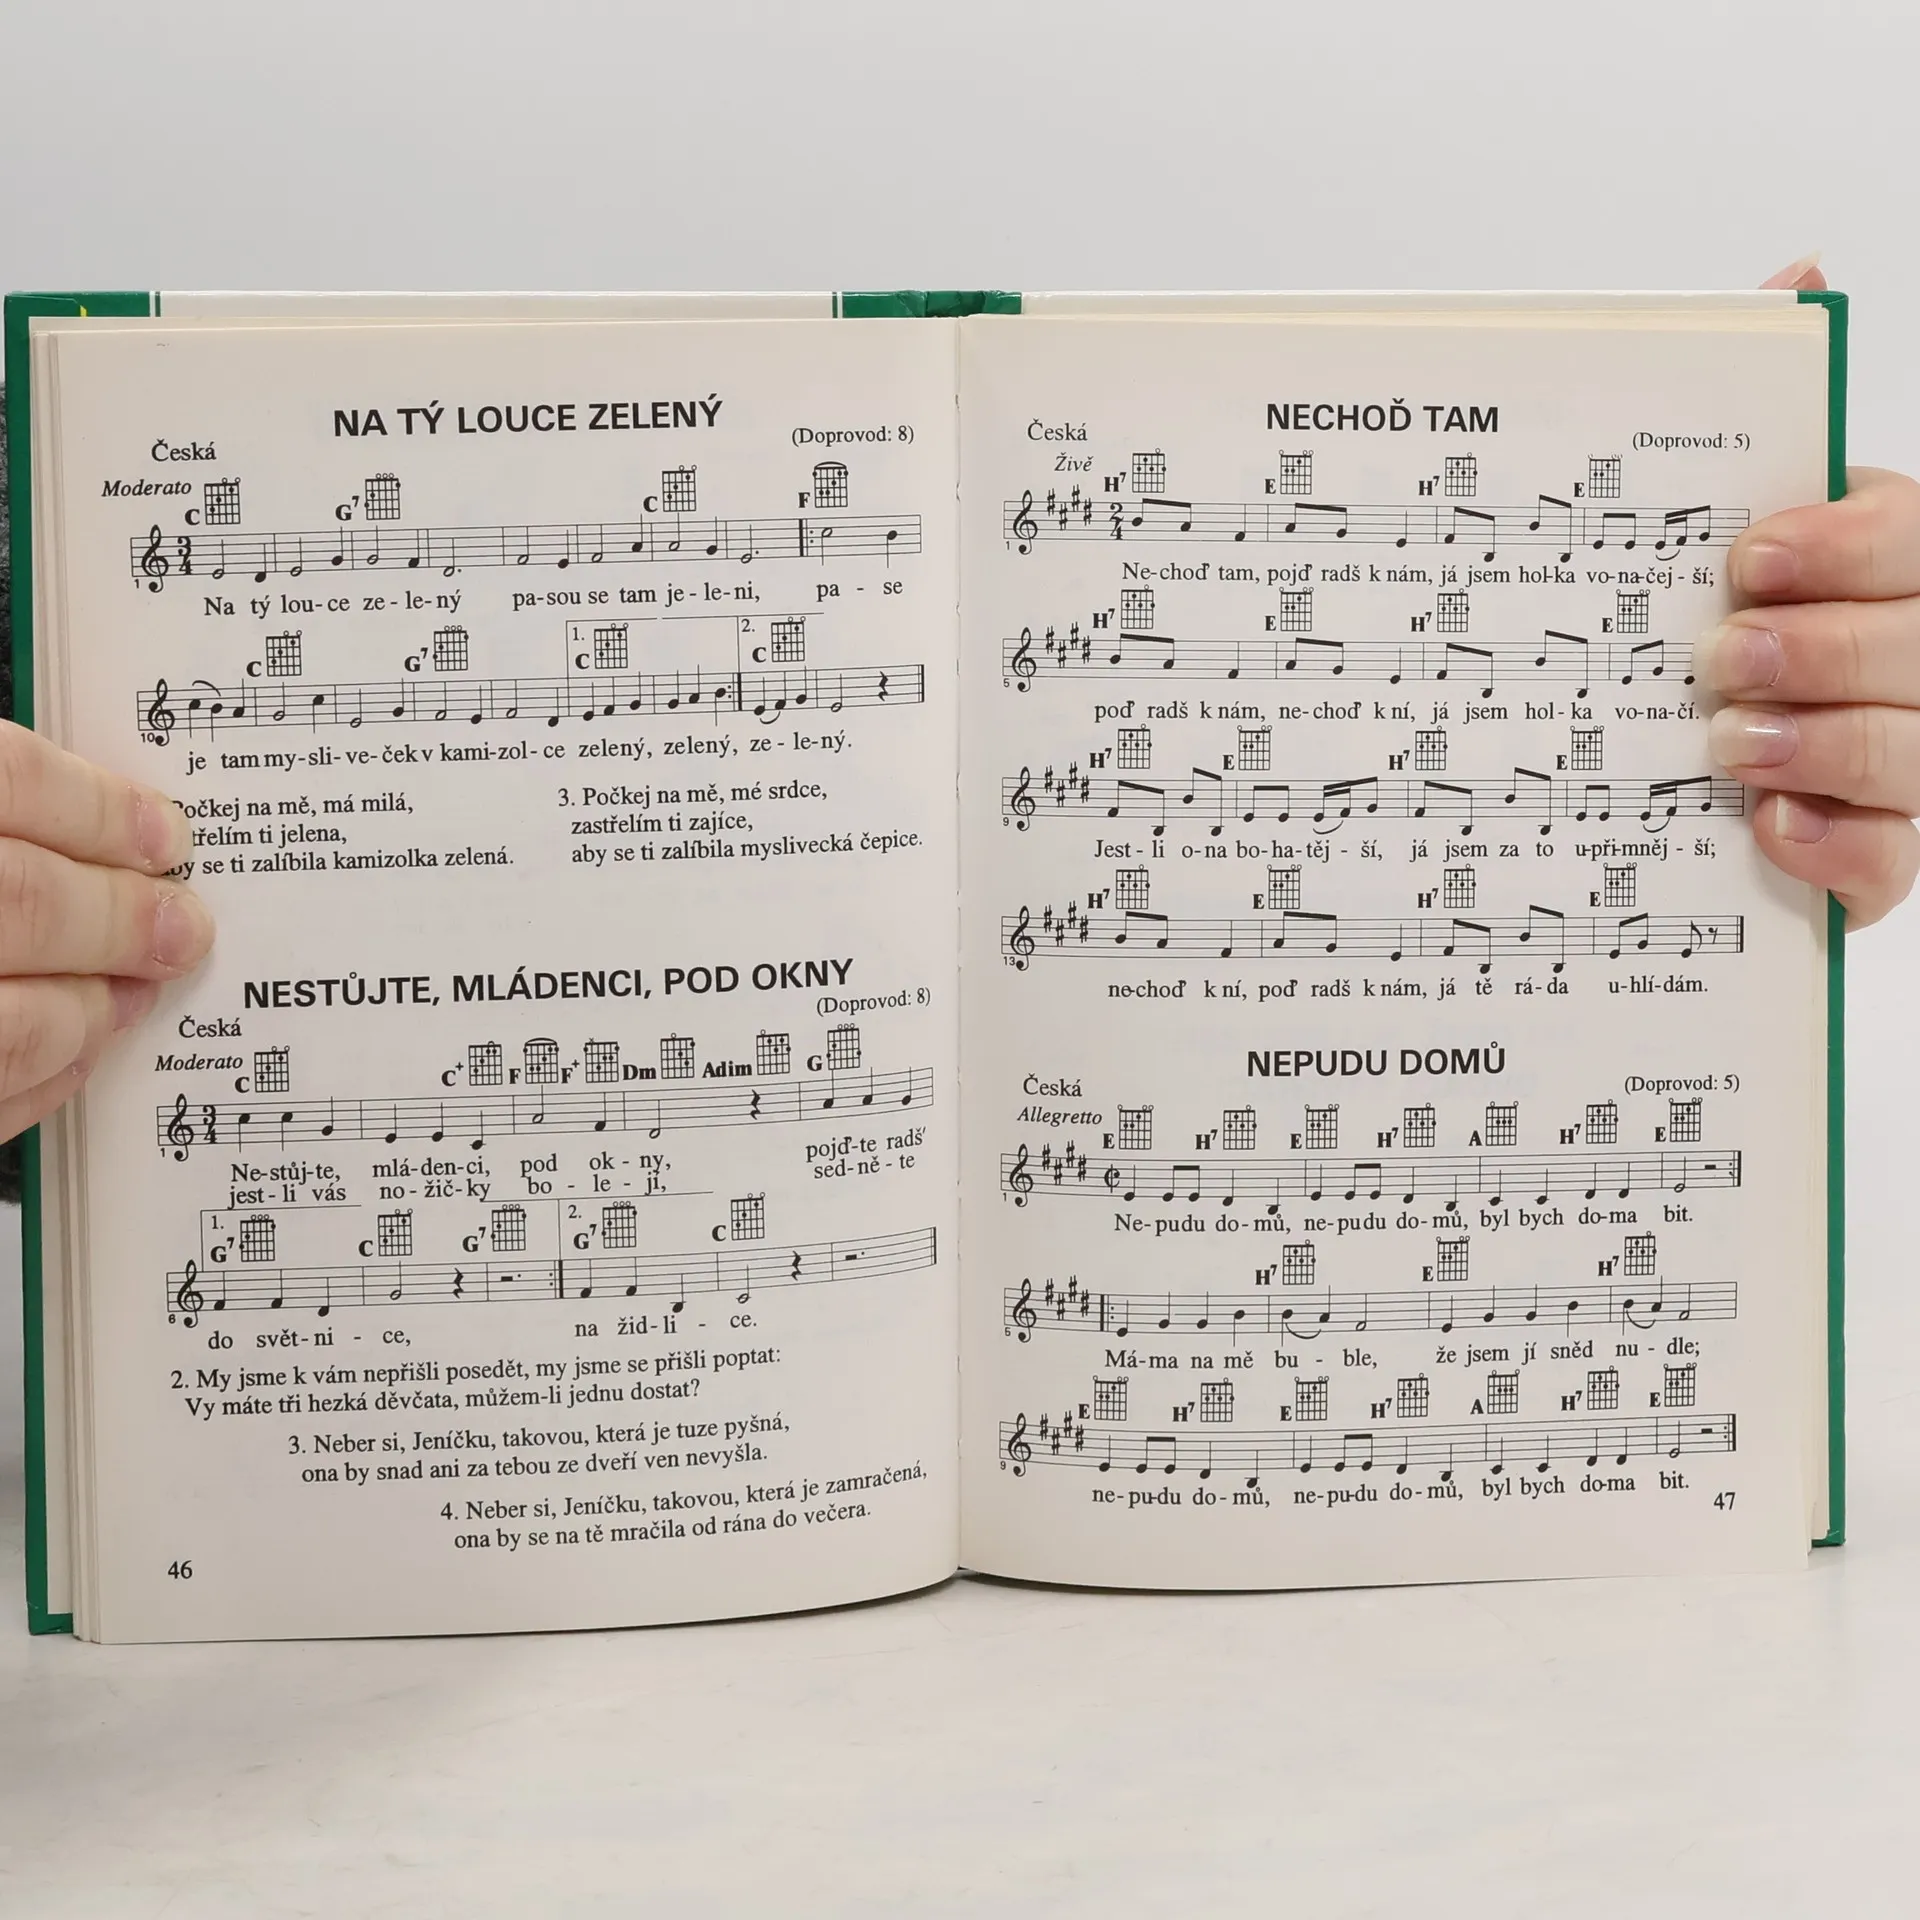 NA TÝ LOUCE ZELENÝ
Česká
(Doprovod: 8)
Moderato
C G7 C F
3 4
1
Na tý lou-ce ze-le-ný pa-sou se tam je-le-ni, pa - se
C G7 1. C 2. C
10
je tam my-sli-ve-ček v kami-zol-ce zelený, zelený, ze-le-ný.
Počkej na mě, má milá,
třelím ti jelena,
aby se ti zalíbila kamizolka zelená.
3. Počkej na mě, mé srdce,
zastřelím ti zajíce,
aby se ti zalíbila myslivecká čepice.
NESTŮJTE, MLÁDENCI, POD OKNY
(Doprovod: 8)
Česká
Moderato
C C+ F F+ Dm Adim G
3 4
1
Ne-stůj-te, mlá-den-ci, pod ok-ny, pojď-te radš'
jest-li vás no-žič-ky bo-le-jí, sed-ně-te
1. G7 C G7 2. G7 C
6
do svět-ni - ce, na žid-li - ce.
2. My jsme k vám nepřišli posedět, my jsme se přišli poptat:
Vy máte tři hezká děvčata, můžem-li jednu dostat?
3. Neber si, Jeníčku, takovou, která je tuze pyšná,
ona by snad ani za tebou ze dveří ven nevyšla.
4. Neber si, Jeníčku, takovou, která je zamračená,
ona by se na tě mračila od rána do večera.
46
NECHOĎ TAM
Česká
(Doprovod: 5)
Živě
H7 E H7 E
2 4
1
Ne-choď tam, pojď radš k nám, já jsem hol-ka vo-na-čej-ší;
H7 E H7 E
5
poď radš k nám, ne-choď k ní, já jsem hol-ka vo-na-čí.
H7 E H7 E
9
Jest-li o-na bo-ha-těj-ší, já jsem za to u-při-mněj-ší;
H7 E H7 E
13
ne-choď k ní, poď radš k nám, já tě rá-da u-hlí-dám.
NEPUDU DOMŮ
Česká
(Doprovod: 5)
Allegretto
E H7 E H7 A H7 E
1
Ne-pudu do-mů, ne-pu du do-mů, byl bych do-ma bit.
H7 E H7
5
Má-ma na mě bu - ble, že jsem jí sněd nu - dle;
E H7 E H7 A H7 E
9
ne-pu-du do-mů, ne-pu-du do-mů, byl bych do-ma bit.
47